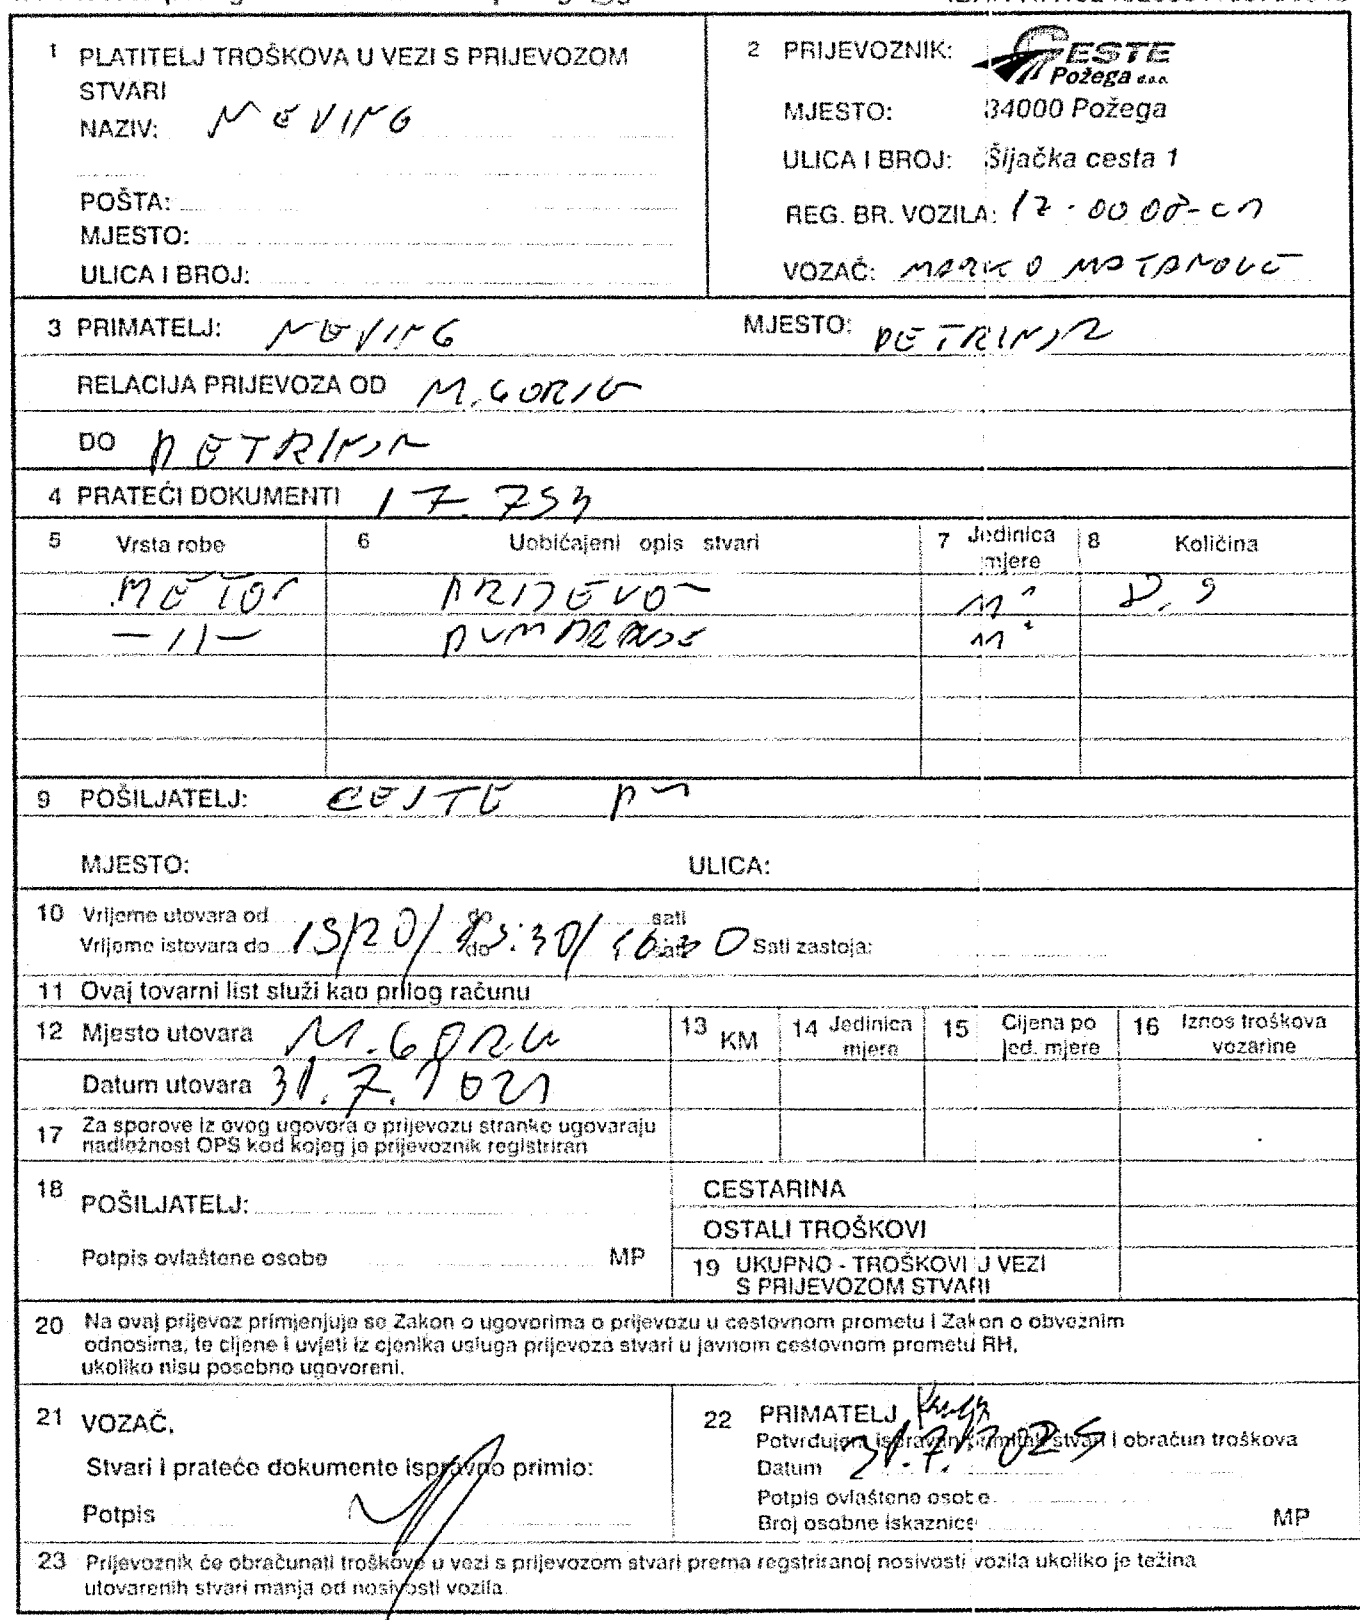 1 PLATITELJ TROŠKOVA U VEZI S PRIJEVOZOM
STVARI
NAZIV: NEVING
POŠTA:
MJESTO:
ULICA I BROJ:
2 PRIJEVOZNIK: CESTE
Požega d.o.o.
MJESTO: 34000 Požega
ULICA I BROJ: Šijačka cesta 1
REG. BR. VOZILA:
VOZAČ: MARKO MATANOVIĆ
3 PRIMATELJ: NEVING MJESTO: PETRINJA
RELACIJA PRIJEVOZA OD M. GORIC
DO PETRINJA
4 PRATEĆI DOKUMENTI 17.753
5 Vrsta robe 6 Uobičajeni opis stvari 7 Jedinica mjere 8 Količina
BETON PRIJEVOZ m³
-11- PUMPANJE m³
9 POŠILJATELJ: CESTE PŽ
MJESTO: ULICA:
10 Vrijeme utovara od do sati
Vrijeme istovara do do sati Sati zastoja:
11 Ovaj tovarni list služi kao prilog računu
12 Mjesto utovara M. GORIC
Datum utovara 31.7.
13 KM 14 Jedinica mjere 15 Cijena po jed. mjere 16 Iznos troškova vozarine
17 Za sporove iz ovog ugovora o prijevozu stranke ugovaraju
nadležnost OPS kod kojeg je prijevoznik registriran
18 POŠILJATELJ:
Potpis ovlaštene osobe MP
CESTARINA
OSTALI TROŠKOVI
19 UKUPNO - TROŠKOVI U VEZI
S PRIJEVOZOM STVARI
20 Na ovaj prijevoz primjenjuje se Zakon o ugovorima o prijevozu u cestovnom prometu i Zakon o obveznim
odnosima, te cijene i uvjeti iz cjenika usluga prijevoza stvari u javnom cestovnom prometu RH,
ukoliko nisu posebno ugovoreni.
21 VOZAČ,
Stvari i prateće dokumente ispravno primio:
Potpis
22 PRIMATELJ
Potvrđujem ispravan primitak stvari i obračun troškova
Datum 31.7.2025
Potpis ovlaštene osobe
Broj osobne iskaznice MP
23 Prijevoznik će obračunati troškove u vezi s prijevozom stvari prema regstriranoj nosivosti vozila ukoliko je težina
utovarenih stvari manja od nosivosti vozila.